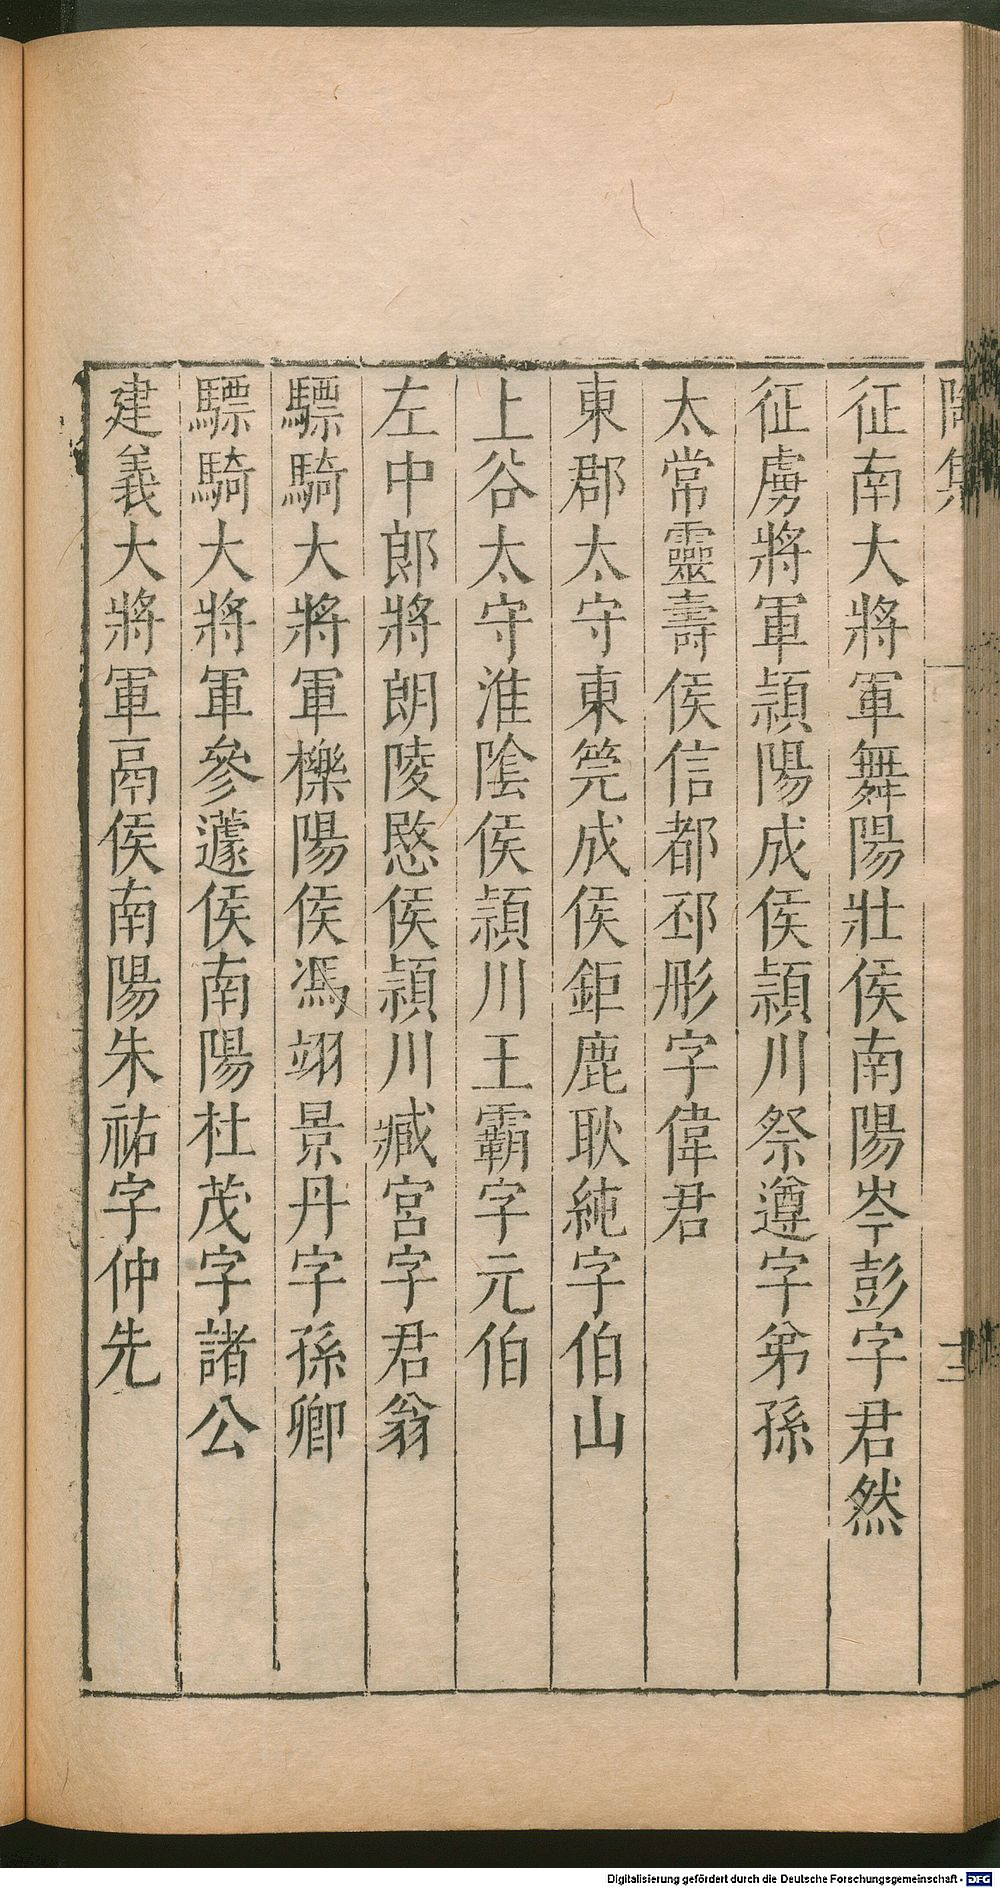 征南大將軍舞陽壯侯南陽岑彭字君然
征虜將軍潁陽成侯潁川祭遵字弟孫
太常靈壽侯信都邳彤字偉君
東郡太守東筦成侯鉅鹿耿純字伯山
上谷太守淮陰侯潁川王霸字元伯
左中郎將朗陵愍侯潁川臧宮字君翁
驃騎大將軍櫟陽侯馮翊景丹字孫卿
驃騎大將軍參蘧侯南陽杜茂字諸公
建義大將軍鬲侯南陽朱祐字仲先
Digitalisierung gefördert durch die Deutsche Forschungsgemeinschaft - DFG